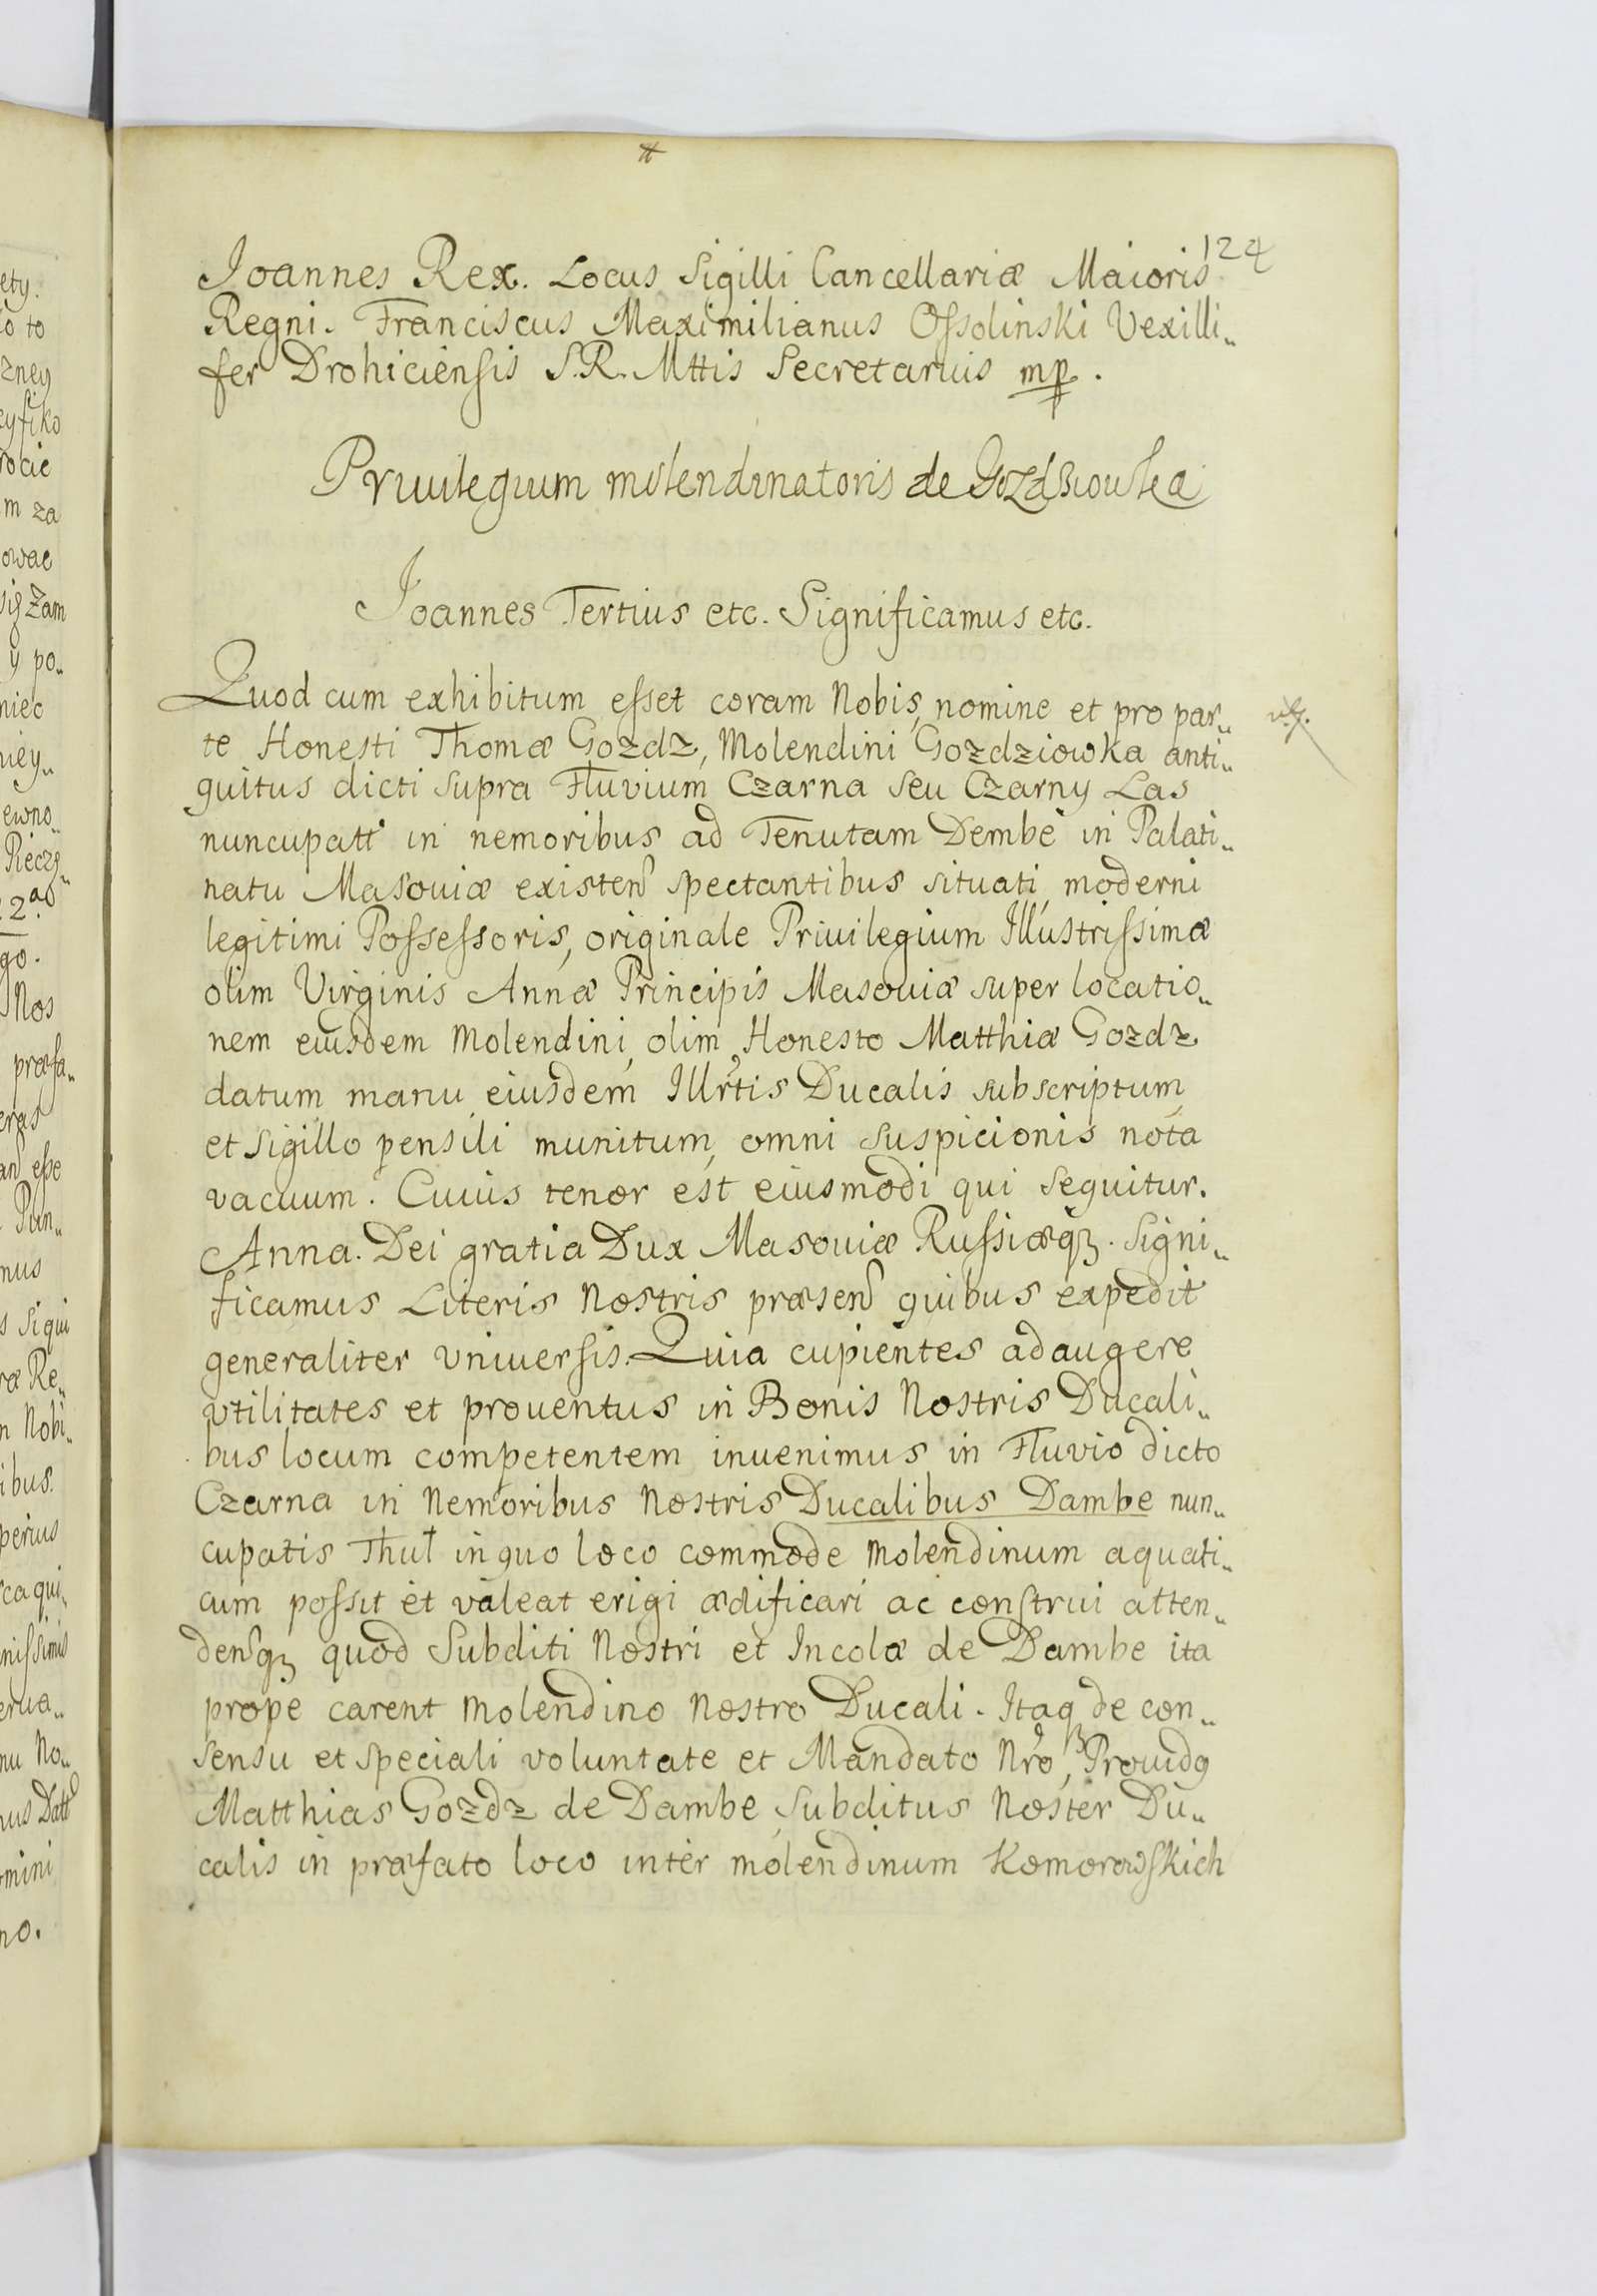 124
Joannes Rex. Locus Sigilli Cancellariæ Maioris
Regni. Franciscus Maximilianus Ossolinski Vexilli„
fer Drohiciensis S.R. Mttis Secretarius mp.
Priuilegium molendinatoris de Gozdziowka
Joannes Tertius etc. Significamus etc.
Quod cum exhibitum esset coram Nobis, nomine et pro par„
te Honesti Thomæ Gozdz, Molendini Gozdziowka anti„
quitus dicti supra Fluvium Czarna seu Czarny Las
nuncupati in nemoribus ad Tenutam Dembe in Palati„
natu Masouiæ existen spectantibus situati, moderni
legitimi Possessoris, originale Priuilegium Illustrissimæ
olim Virginis Annæ Principis Masouiæ super locatio„
nem eiusdem Molendini, olim Honesto Matthiæ Gozdz
datum manu eiusdem Illrtis Ducalis subscriptum
et sigillo pensili munitum, omni suspicionis nota
vacuum. Cuius tenor est eiusmodi qui sequitur.
Anna. Dei gratia Dux Masouiæ Russiæq3. Signi„
ficamus Literis Nostris præsen quibus expedit
generaliter vniuersis. Quia cupientes adaugere
vtilitates et prouentus in Bonis Nostris Ducali„
bus locum competentem inuenimus in Fluvio dicto
Czarna in Nemoribus Nostris Ducalibus Dambe nun„
cupatis Thul in quo loco commode Molendinum aquati„
cum possit et valeat erigi ædificari ac construi atten„
densq3 quod Subditi Nostri et Incolæ de Dambe ita
prope carent Molendino Nostro Ducali. Itaq3 de con„
sensu et speciali voluntate et Mandato Nro, Prouidg
Matthias Gozdz de Dambe subditus Noster Du„
calis in præfato loco inter molendinum Komorowskich